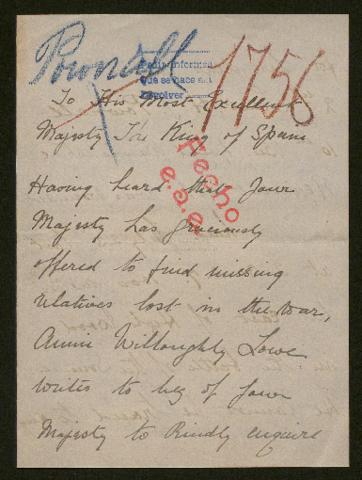 Pownall
1756
Para informes
que se hace en
devolver
To His Most Excellent
Majesty The King of Spain
Hecho
e.a.e
Having heard that Your
Majesty has graciously
offered to find missing
relatives lost in the war,
Annie Willoughby Lowe
writes to beg of Your
Majesty to kindly enquire